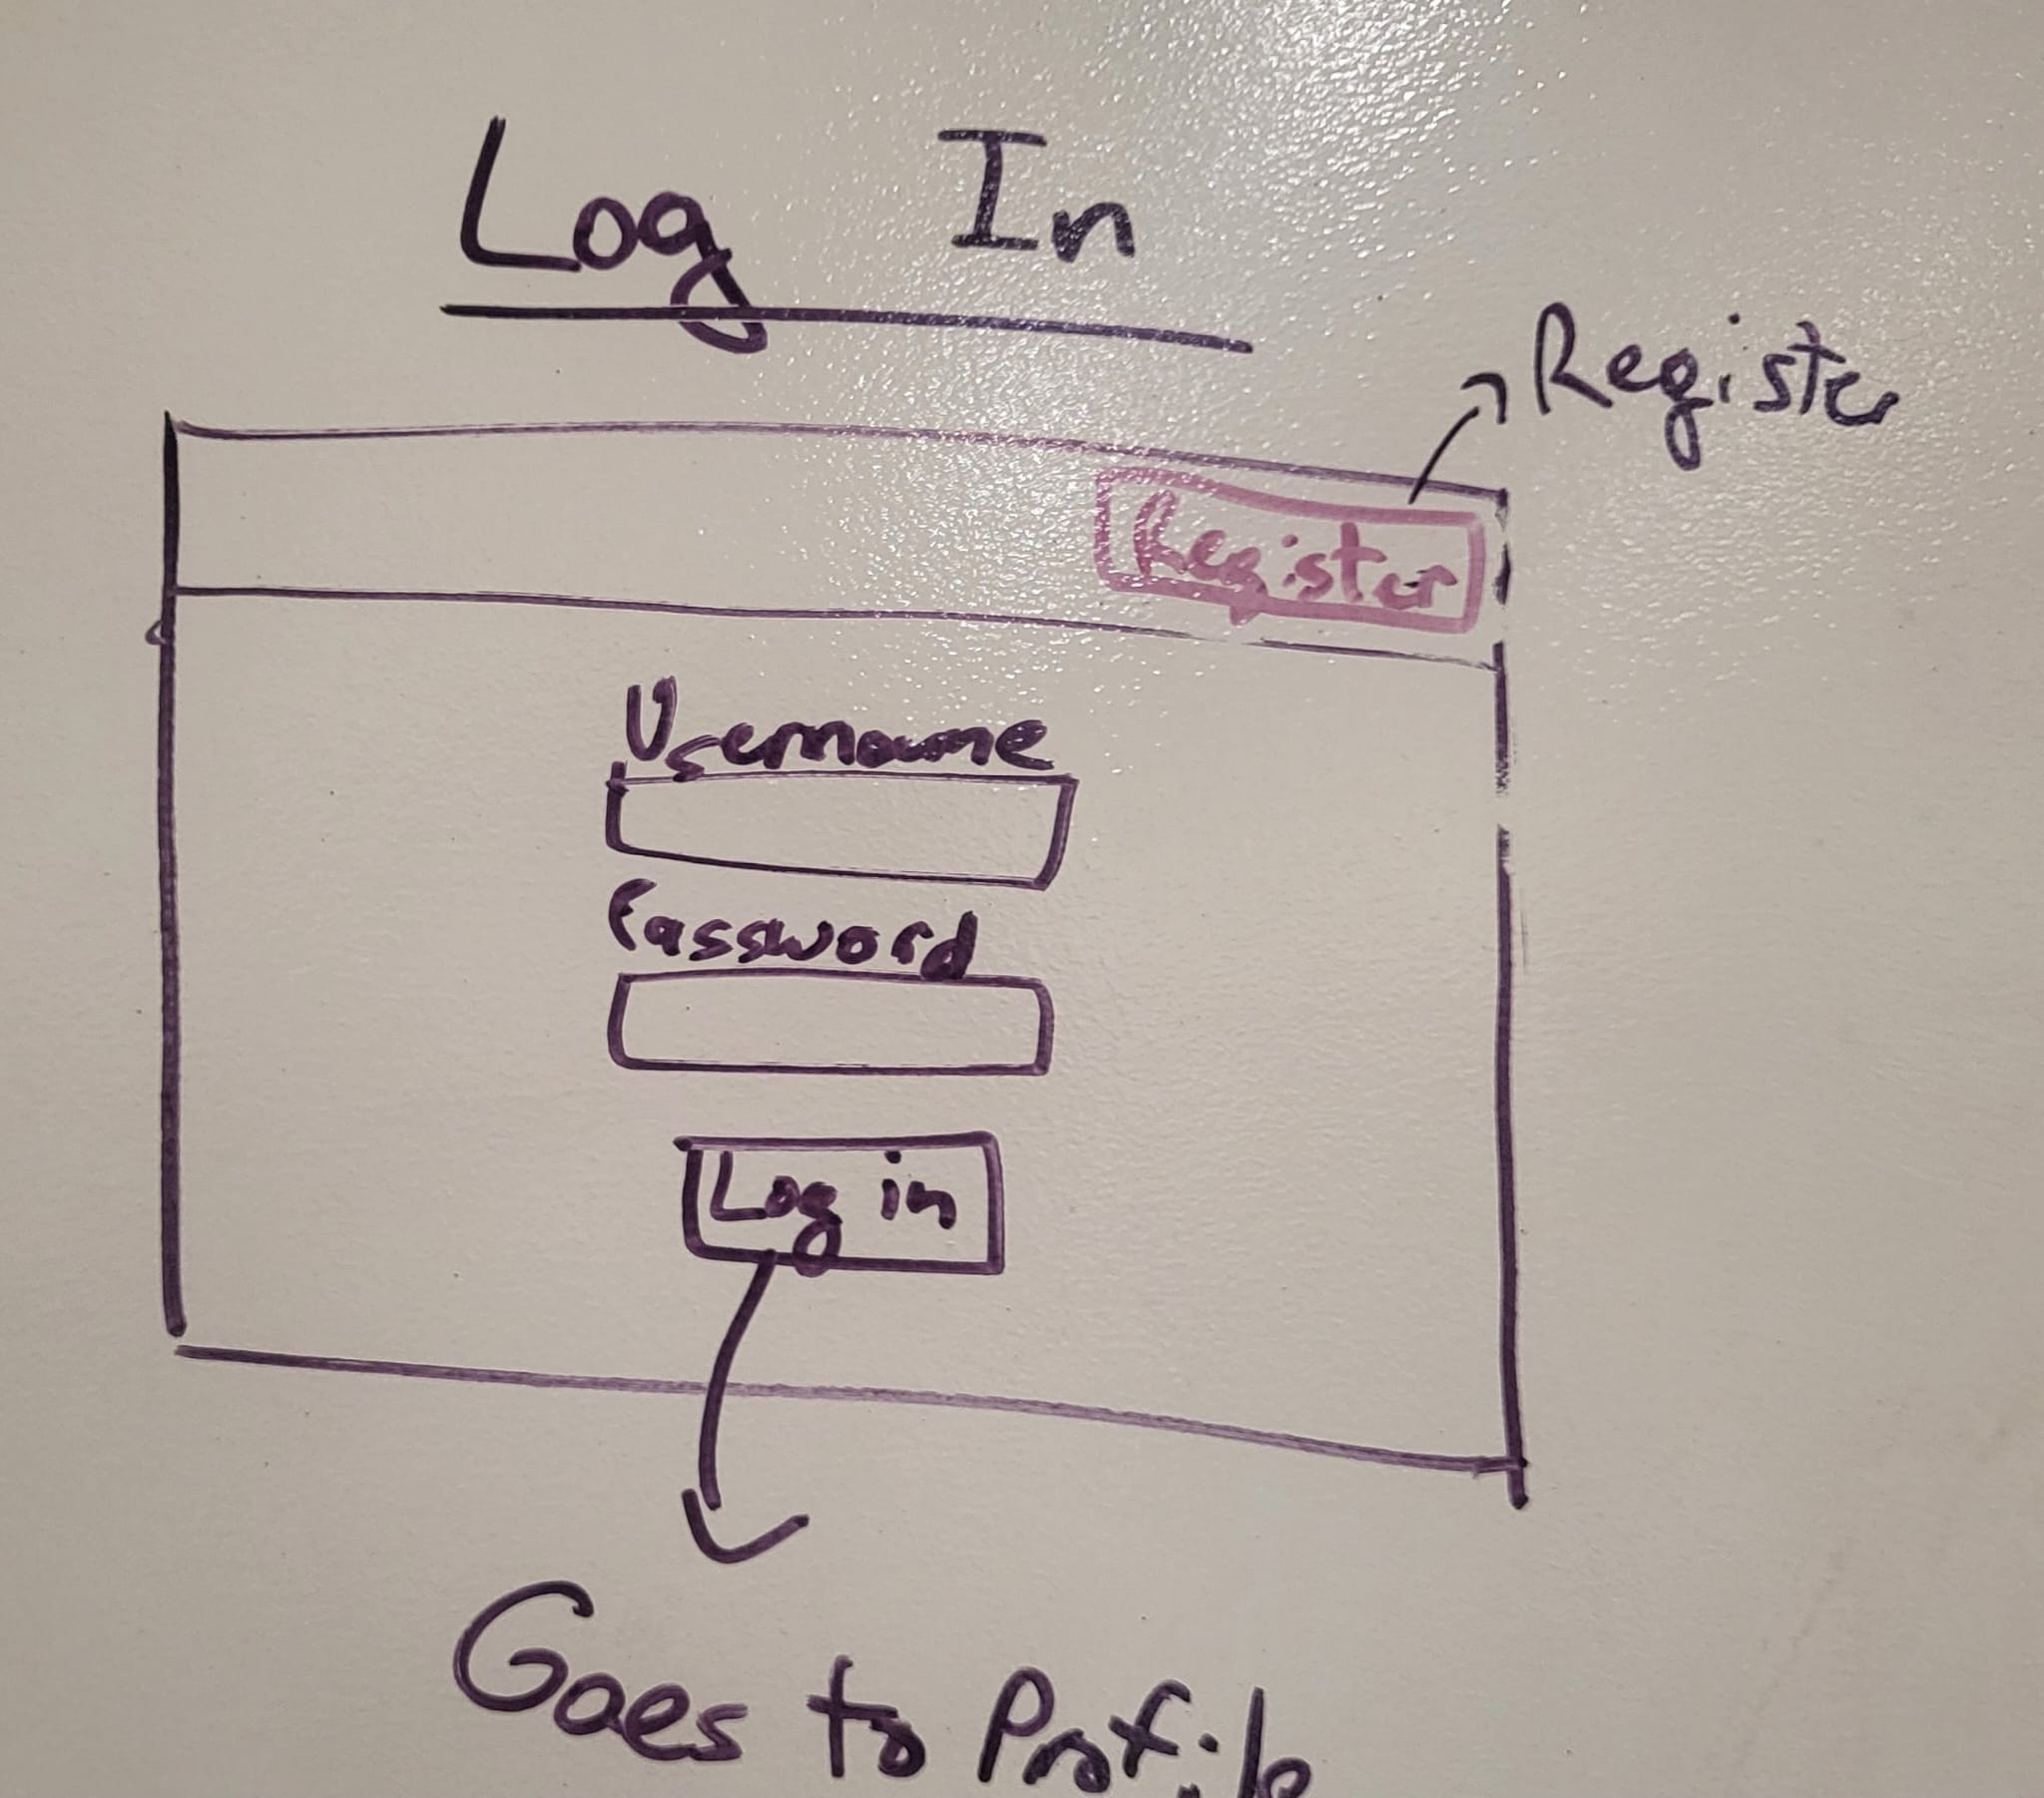 Log In
Register
Register
Username
Password
Log in
Goes to Profile